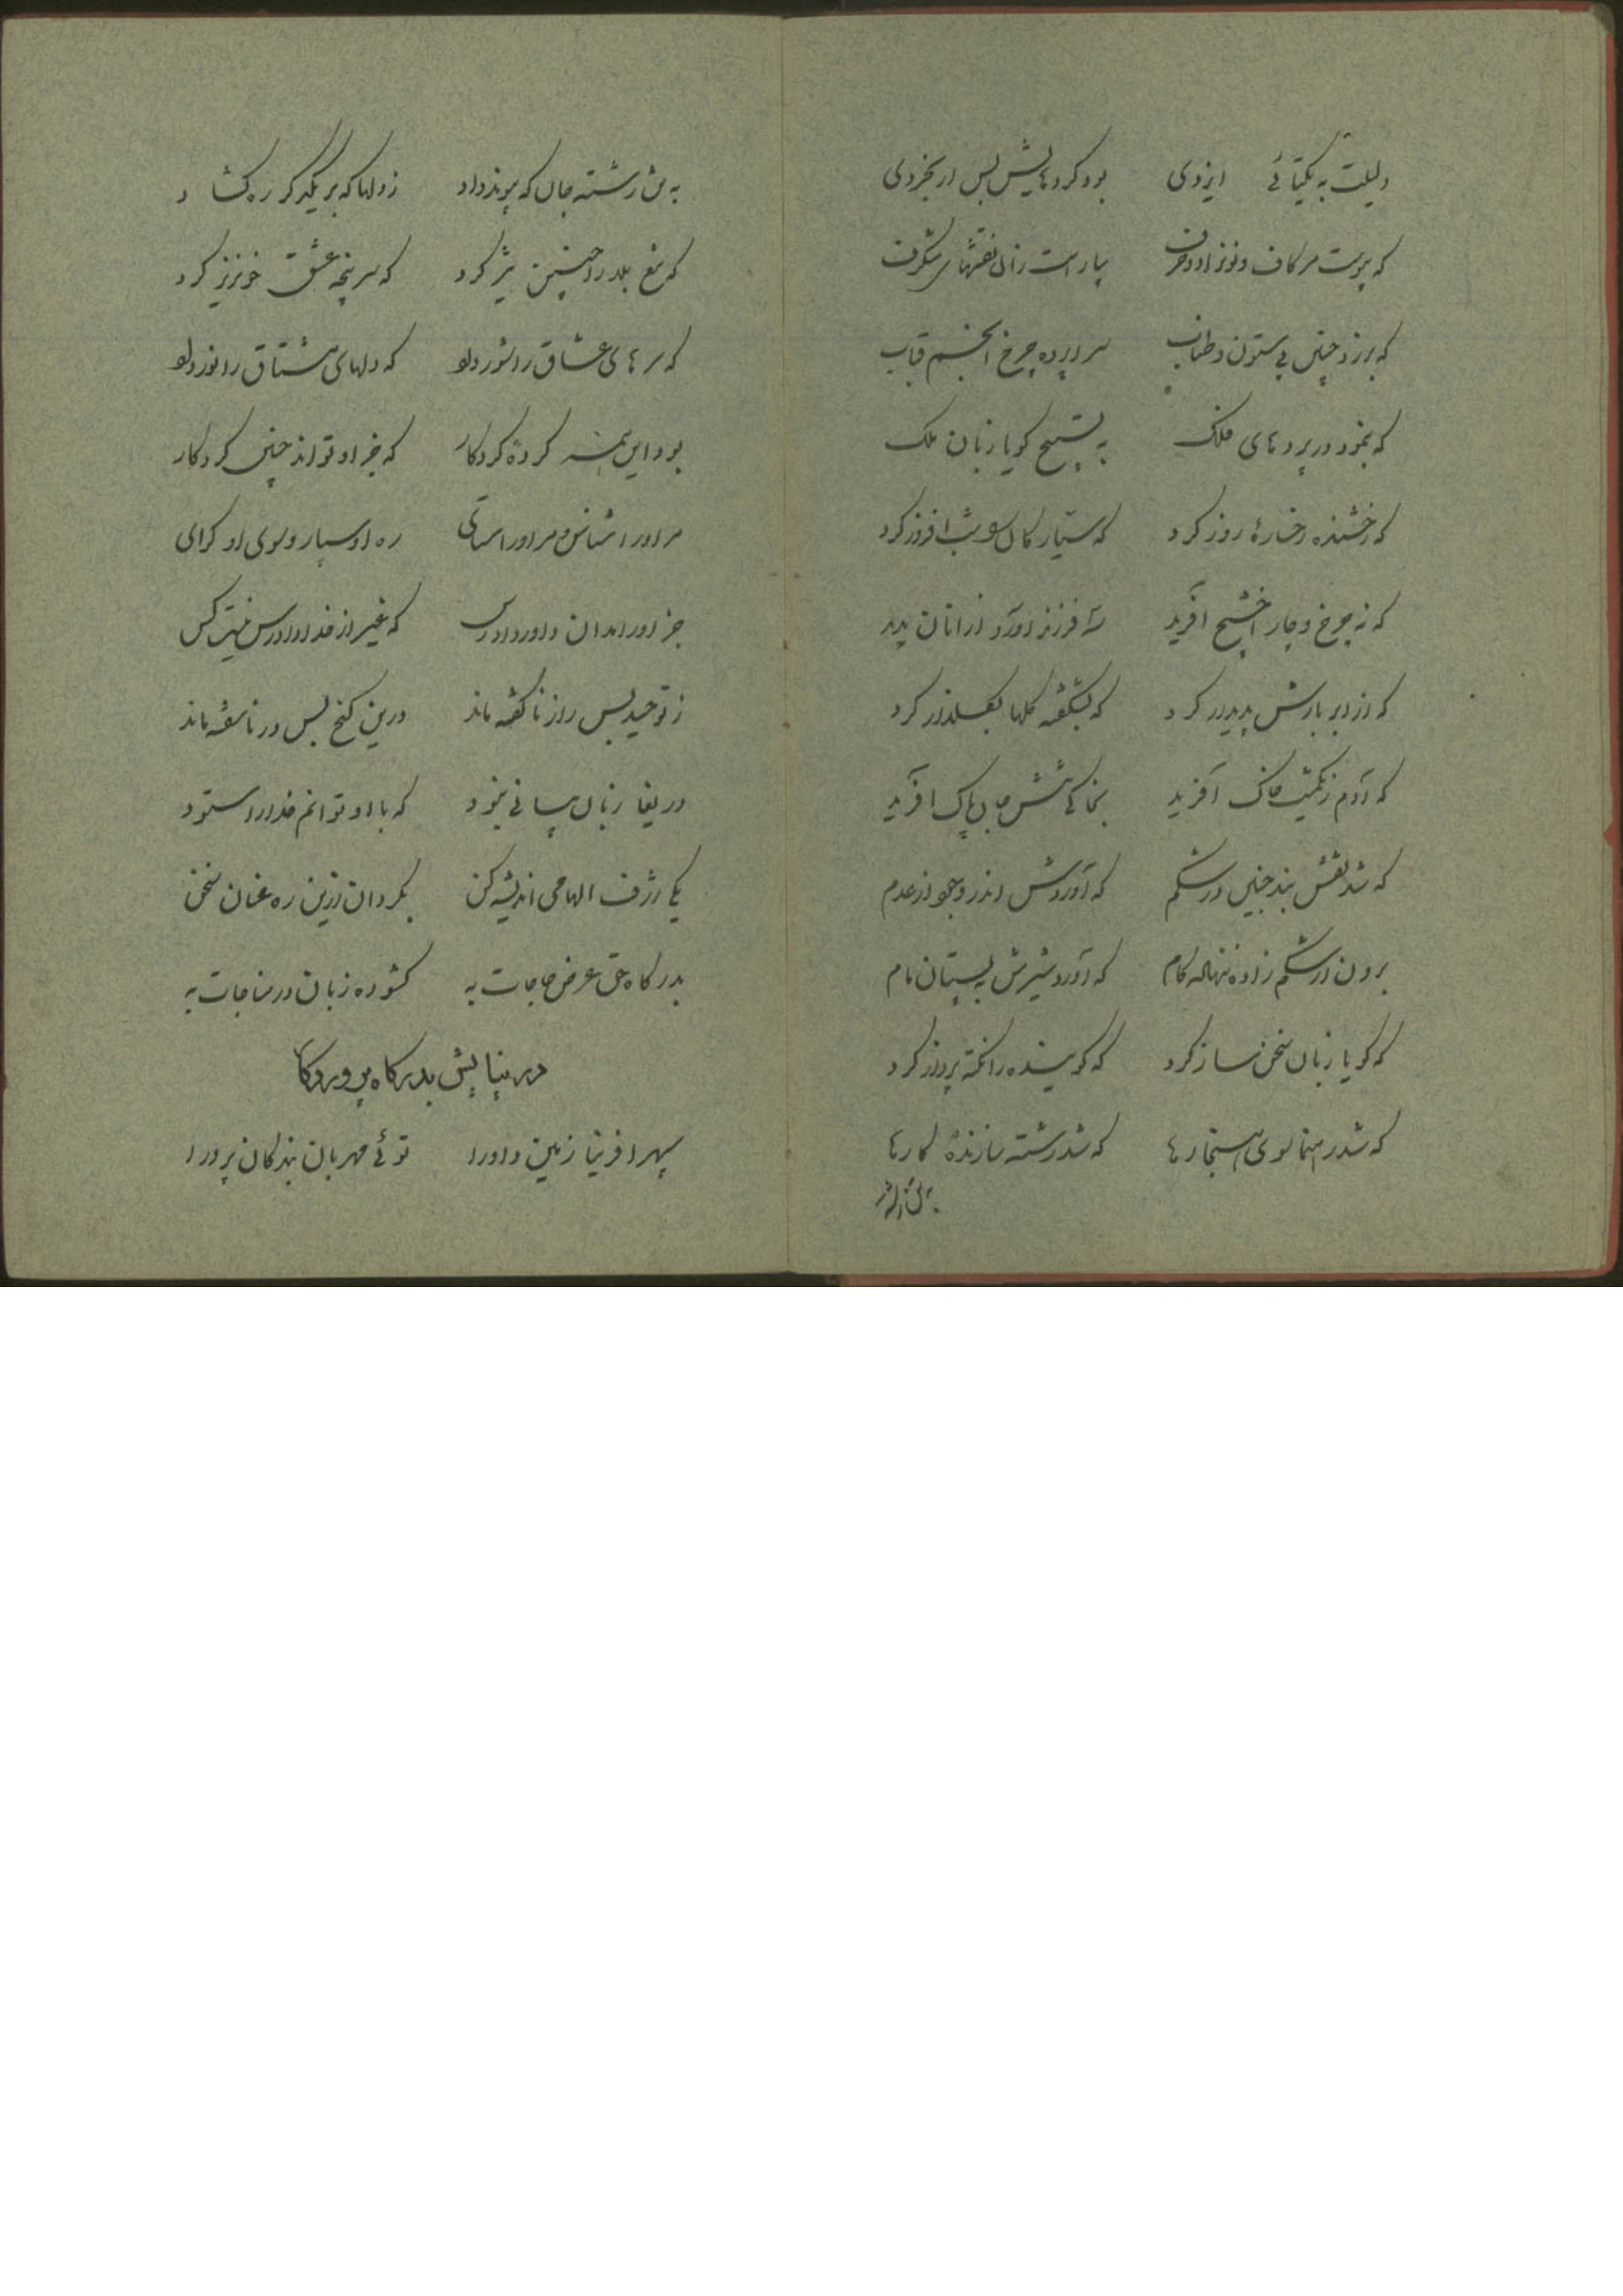 دلیلت به یکتائی ایزدی بود کردهایش بس ار بخردی
که پیوست مر کاف و نون را دو حرف بیاراست زان نقشهای شگرف
که برزد چنین بی ستون و طناب سراپرده چرخ انجم قباب
که بنمود در پردهای فلک به تسبیح کویا زبان ملک
که رخشنده رخسارهٔ روز کرد که سیارکان شب افروز کرد
که نه چرخ و چار اخشیج آفرید سه فرزند آورد از آنان پدید
که از ابر بارش پدیدار کرد که بشکفته کلها بکلزار کرد
که آدم ز یکمشت خاک آفرید بخاک اش جان پاک آفرید
که شد نقش بند جنین در شکم که آوردش اندر وجود از عدم
برون از شکم زاده ننهاده کام که آورد شیرش به پستان مام
که کویا زبان سخن ساز کرد که کوینده را نکته پرداز کرد
که شد رهنما سوی هنجارها که شد رشته سازندهٔ کارها
به تن رشته جان که پیوند داد ز دلها که بر یکدکر ره کشاد
که تیغ بلا را چنین تیز کرد که سر پنجه عشق خونریز کرد
که سرهای عشاق را شور داد که دلهای مشتاق را نور داد
بود این همه کردهٔ کردکار که جز او تواند چنین کرد کار
مر او را شناس و مر او را ستای ره او سپار و سوی او کرای
جز او را مدان داور دادرس که غیر از خدا دادرس نیست کس
ز توحید بس راز ناکفته ماند درین کنج بس در ناسفته ماند
دریغا زبان بیانی نبود که با او توانم خدا را ستود
یکی ژرف الهامی اندیشه کن بکردان ازین ره عنان سخن
بدرکاه حق عرض حاجات به کشوده زبان در مناجات به
در نیایش بدرکاه پروردکار
سپهر آفرینا زمین داورا توئی مهربان بندکان پرورا